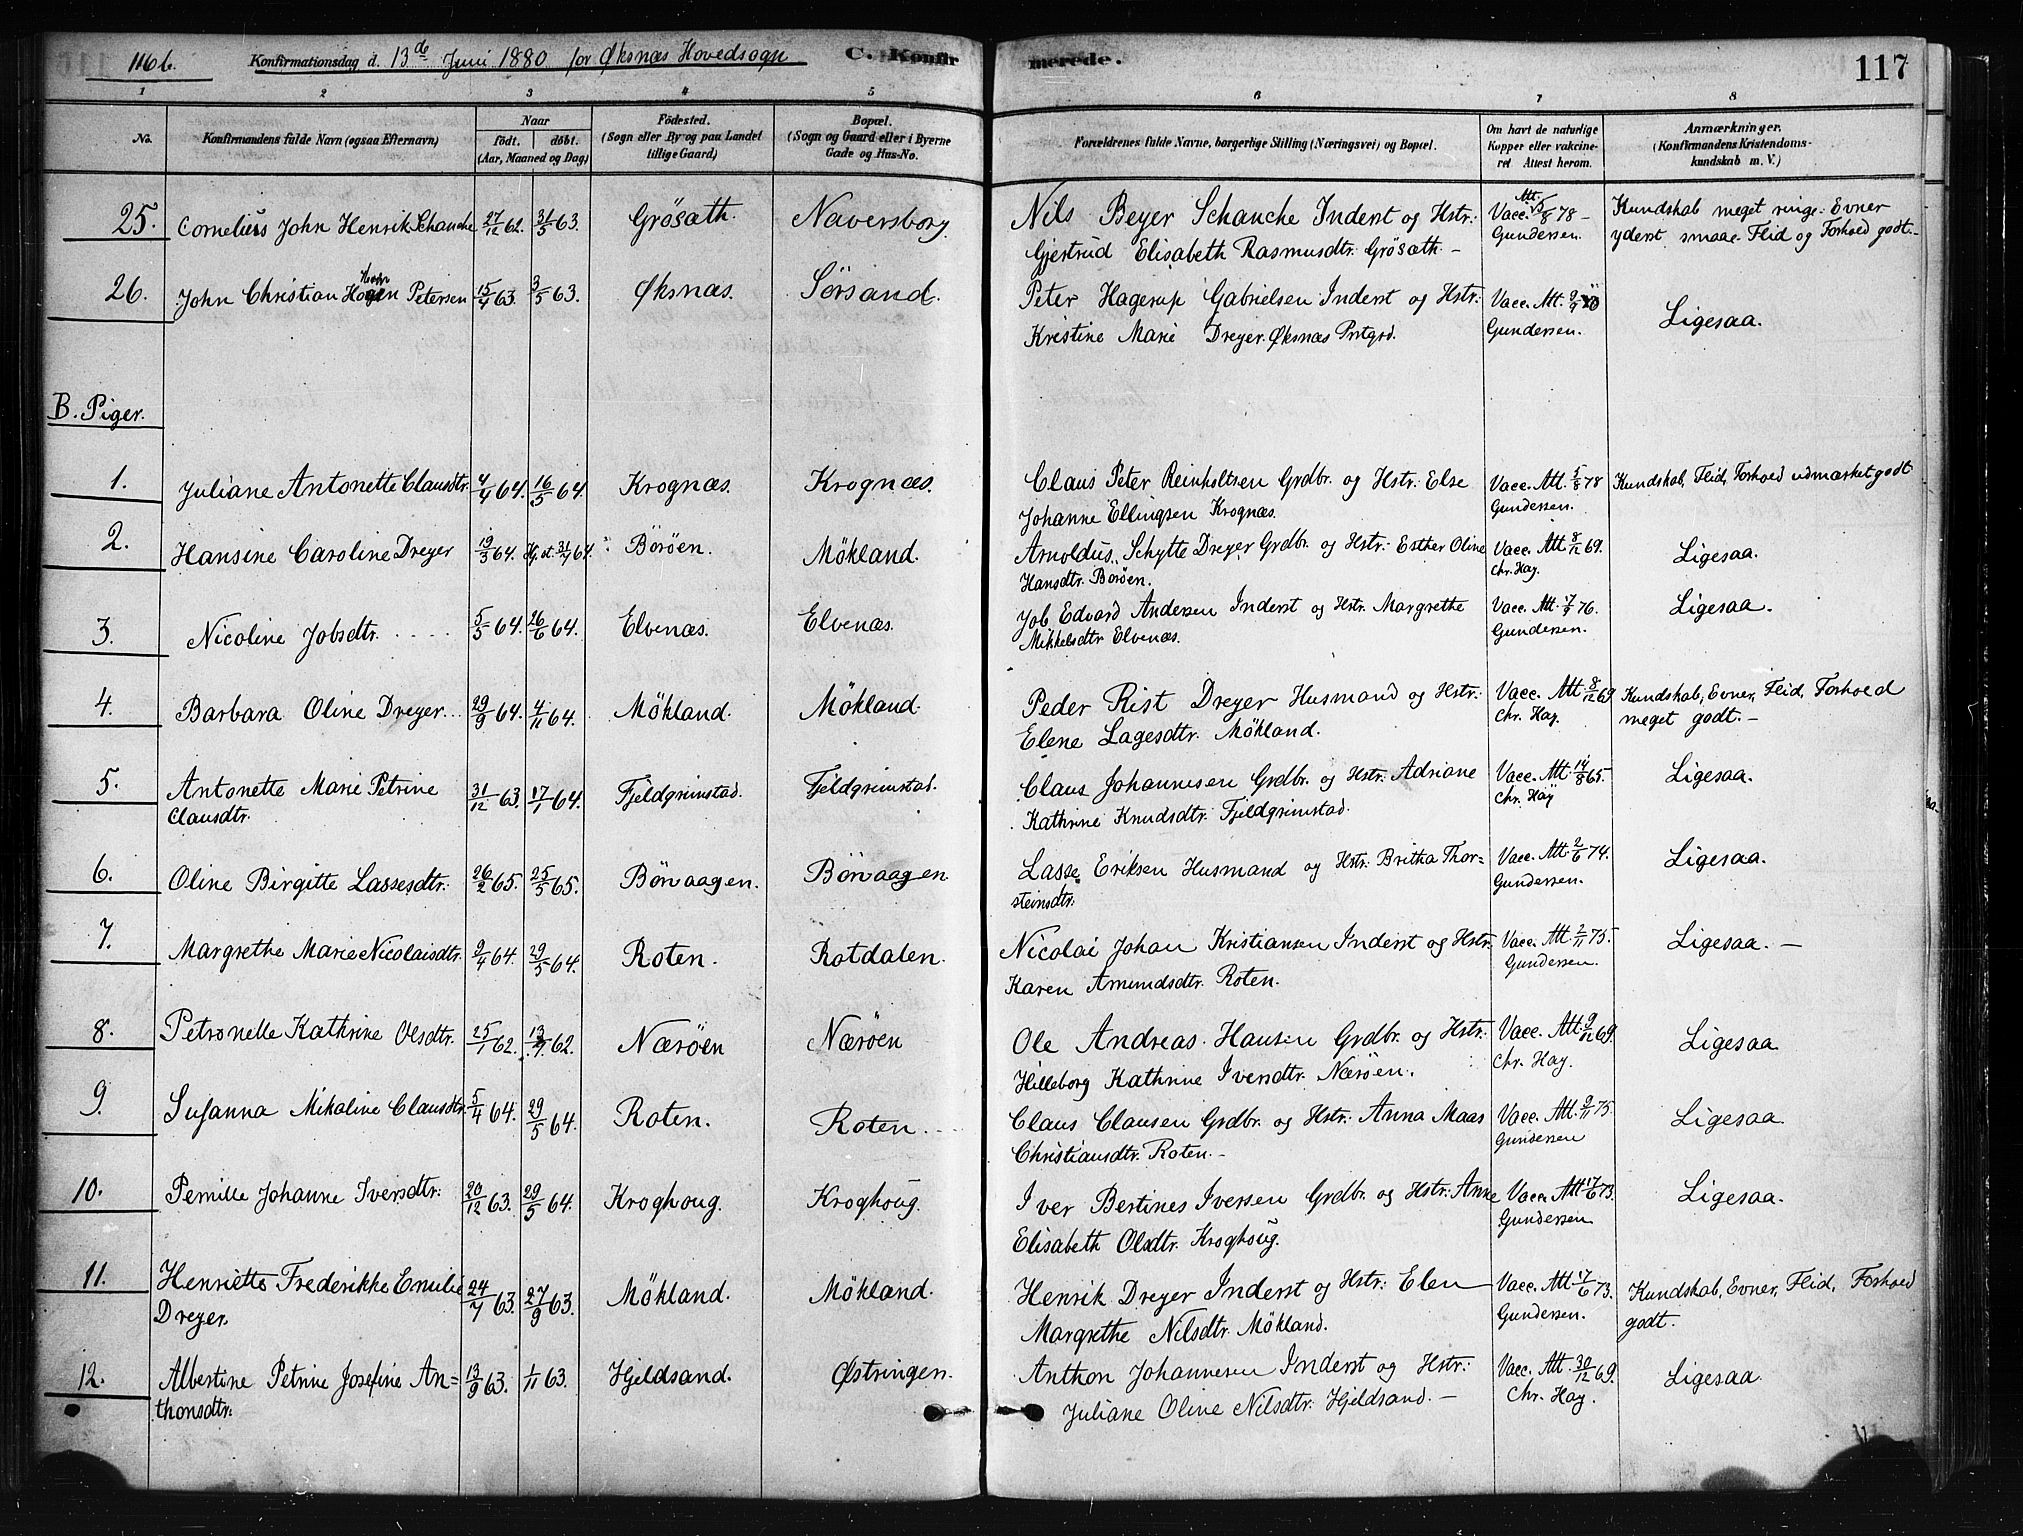 116 b. Konfirmationsdag d. 13de Juni 1880 for Øksnæs Hovedsogn C. Konfirmerede. 117
1 2 3 4 5 6 7 8
No. Konfirmandens fulde Navn (ogsaa Efternavn) Naar födt. döbt. (Aar, Maaned og Dag) Födested. (Sogn eller By og paa Landet tillige Gaard) Bopæl. (Sogn og Gaard eller i Byerne Gade og Hus-No. Forældrenes fulde Navne, borgerlige Stilling (Næringsvei) og Bopæl. Om havt de naturlige Kopper eller vakcineret Attest herom. Anmærkninger. (Konfirmandens Kristendomskundskab m. V.)
25. Cornelius John Henrik Schanche 27/12 62. 31/5 63. Grösæth. Naversborg. Nils Beyer Schanche Inderst og Hstr: Vacc. Att. 5/8 78 – Kundskab meget ringe. Evner
Gjertrud Elisabeth Rasmusdtr. Grösæth – Gundersen. yderst smaae. Flid og Forhold godt. –
26. John Christian Petersen 15/4 63. 3/5 63. Øksnæs. Sörsand. Peter Hagerup Gabrielsen Inderst og Hstr: Vacc. Att. Ligesaa.
Kristine Marie Dreyer. Øksnæs Prstgrd. Gundersen.
B. Piger.
1. Juliane Antonette Clausdtr. 4/4 64. 16/5 64. Krognæs. Krognæs. Claus Peter Reinholtsen Grdbr. og Hstr: Else Vacc. Att. 5/8 78 Kundskab, Flid, Forhold udmærket godt
Johanne Ellingsen Krognæs. Gundersen.
2. Hansine Caroline Dreyer 19/3 64. Hj. dt. 31/7 64. Böröen. Mökland. Arnoldus Schytte Dreyer Grdbr. og Hstr: Esther Oline Vacc. Att 8/12 69. Ligesaa.
Hansdtr. Böröen. Chr. Hay.
3. Nicoline Jobsdtr. 5/5 64. 26/6 64. Elvenæs. Elvenæs. Job Edvard Andersen Inderst og Hstr. Margrethe Vacc. Att. 17/9 76. Ligesaa.
Mikkelsdtr Elvenæs. Gundersen.
4. Barbara Oline Dreyer. 29/9 64. 4/11 64. Mökland. Mökland. Peder Rist Dreyer Husmand og Hstr: Vacc. Att 8/12 69 Kundskab, Evner, Flid, Forhold
Elene Lagesdtr. Mökland. Chr. Hay. meget godt. –
5. Antonette Marie Petrine 31/12 63. 17/1 64. Fjeldgrimstad. Fjeldgrimstad. Claus Johannesen Grdbr. og Hstr: Adriane Vacc. Att. 14/8 65. Ligesaa.
Clausdtr. Kathrine Knudsdtr. Fjeldgrimstad. Chr. Hay
6. Oline Birgitte Lassesdtr. 26/2 65. 25/5 65. Börvaagen. Börvaagen. Lasse Eriksen Husmand og Hstr: Britha Thor- Vacc. Att. 2/6 74. Ligesaa.
steinsdtr. Gundersen.
7. Margrethe Marie Nicolaisdtr. 9/4 64. 29/5 64. Roten. Rotdalen. Nicolai Johan Kristiansen Inderst og Hstr. Vacc. Att 2/11 75. Ligesaa. –
Karen Amundsdtr. Roten. Gundersen.
8. Petronelle Kathrine Olsdtr. 25/1 62. 62. Næröen Næröen Ole Andreas Hansen Grdbr. og Hstr: Vacc. Att. 9/12 69. Ligesaa
Hilleborg Kathrine Iversdtr. Næröen. Chr. Hay.
9. Susanna Mikaline Clausdtr. 5/4 64. 29/5 64. Roten. Roten. Claus Clausen Grdbr. og Hstr: Anna Maas Vacc. Att. 9/11 75. Ligesaa.
Christiansdtr. Roten. – Gundersen
10. Pernille Johanne Iversdtr. 20/12 63. 29/5 64. Kroghoug. Kroghoug. Iver Bertines Iversen Grdbr. og Hstr: Anne Vacc. Att 17/6 73. Ligesaa.
Elisabeth Olsdtr. Kroghoug. Gundersen.
11. Henriette Frederikke Emilie 24/7 63. 27/9 63. Mökland. Mökland. Henrik Dreyer Inderst og Hstr: Elen Vacc. Att. 17/6 73. Kundskab, Evner, Flid, Forhold
Dreyer. Margrethe Nilsdtr. Mökland. Gundersen. godt.
12. Albertine Petrine Josefine An= 13/9 63. 1/11 63. Hjeldsand. Østringen. Anthon Johannesen Inderst og Hstr: Vacc. Att. 30/12 69. Ligesaa.
thonsdtr. Juliane Oline Nilsdtr. Hjeldsand. – Chr. Hay.